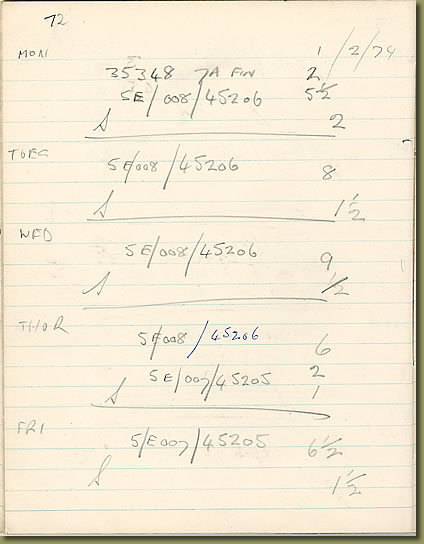 72
MON 1/2/74
35348 7A FIN 2
5E/008/45206 5½
S 2
TUES
5E/008/45206 8
S 1½
WED
5E/008/45206 9
S ½
THUR
5E008/45206 6
5E/007/45205 2
S 1
FRI
5/E007/45205 6½
S 1½